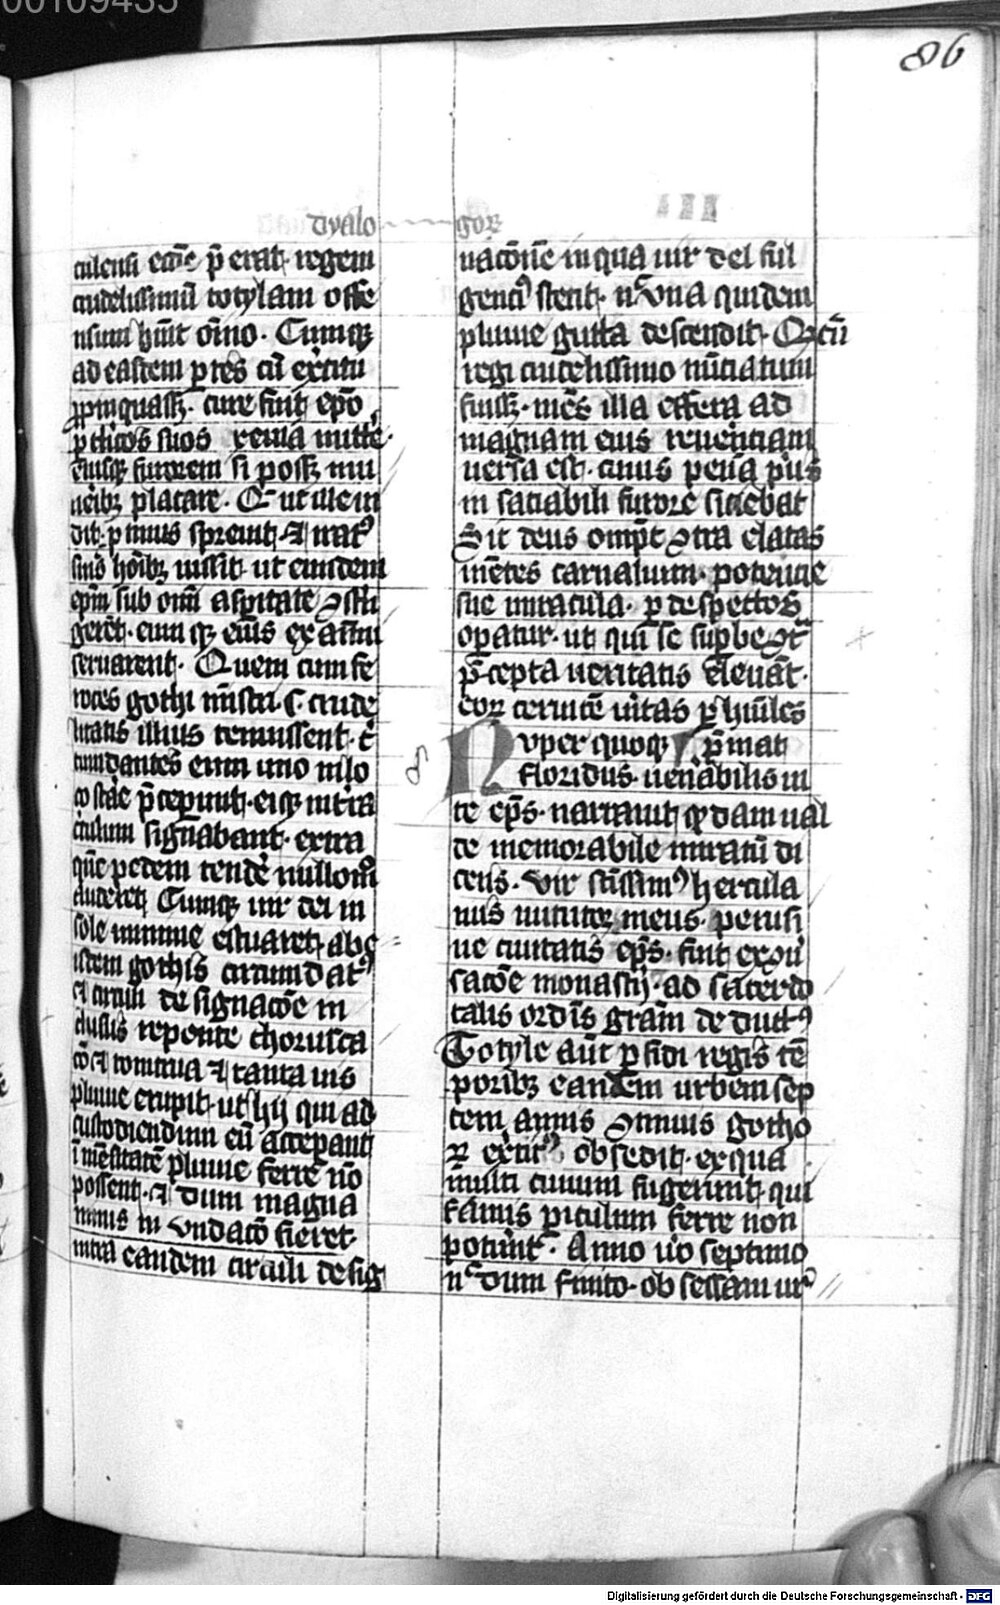 00109435
86
dyalo
gorꝝ
III
culensi eccͣe p̄ erat. regem
crudelissimū totylam offe
nsum hūit oīno. Cumqꝫ
ad easdem ꝑtes cū ex̄citu
ꝓpinquassꝫ. cure fuit ep̄o
ꝑ clicos suos xenia mitte
eiusqꝫ furorem si possꝫ mu
neribꝫ placare. Qͥ ut ille ui
dit. ꝓtinus spreuit. ⁊ irat⁹
suis hoībꝫ iussit. ut eundem
ep̄m sub omī aspitate ꝯstri
geret. eumqꝫ eius examī
seruarent. Quem cum fe
roces gothi mīstri. s. crude
litatis illius tenuissent. c̄
cumdantes eum uno in lo
co stare p̄ceperunt. eiqꝫ in tra
circulum signabant. extra
quē pedem tende nullomō
auderet. Cumqꝫ uir dei in
sole nimme estuaret. ab e
isdem gothis circumdat⁹
et circuli designacōe in
clusus repente chorusca
cō ⁊ tonitrua ⁊ tanta uis
pluuie erupit. ut hij qui ad
custodiendum eū acceperant
ī mēsitatē pluuie ferre nō
possent. ⁊ dum magna
nimis inundacō fieret.
intra eandem circuli desig
nacōnē in qua uir dei ful
genci⁹ stetit. nͨ una quidem
pluuie gutta descendit. Qͦ cū
regi crudelissimo nūciatum
fuissꝫ. mēs illa effera ad
magnam eius reuerēciam
uersa est. cuius penā p̄us
insaciabili furore siciebat
Sic deus omp̄t ꝯtra elatas
mētes carnalium. potencie
sue miracula. ꝑ despectos
oꝑatur. ut qui se supbe ꝯt̄
p̄cepta ueritatis eleuāt.
eorꝝ ceruicē ūitas p̄mat ꝑ hūiles
Nuper quoqꝫ
floridus. uenabilis ui
te ep̄s. narrauit qͦddam ual
de memorabile miraclū di
cens. Vir scīssim⁹ hercula
nus nutritor meus perusi
ne ciuitatis ep̄s. fuit ex ꝯū
sacōe monastij. ad sacerdo
talis ordīs grām deduct⁹
Totyle aūt ꝑfidi regis tē
poribꝫ eandem urbem sep
tem annis ꝯtinuis gotho
rꝝ ex̄cit⁹ obsedit. ex qua
multi ciuium fugerunt. qui
famis piculum ferre non
poterant. Anno ūo septimo
nͦdum finito. obsessam ur
Digitalisierung gefördert durch die Deutsche Forschungsgemeinschaft - DFG